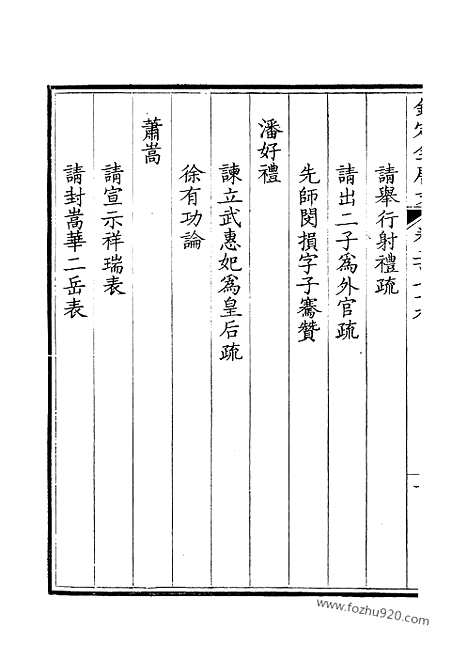 請舉行射禮疏
請出二子爲外官疏
先師閔損字子騫贊
潘好禮
諫立武惠妃爲皇后疏
徐有功論
蕭嵩
請宣示祥瑞表
請封嵩華二岳表
www.fozhu920.com